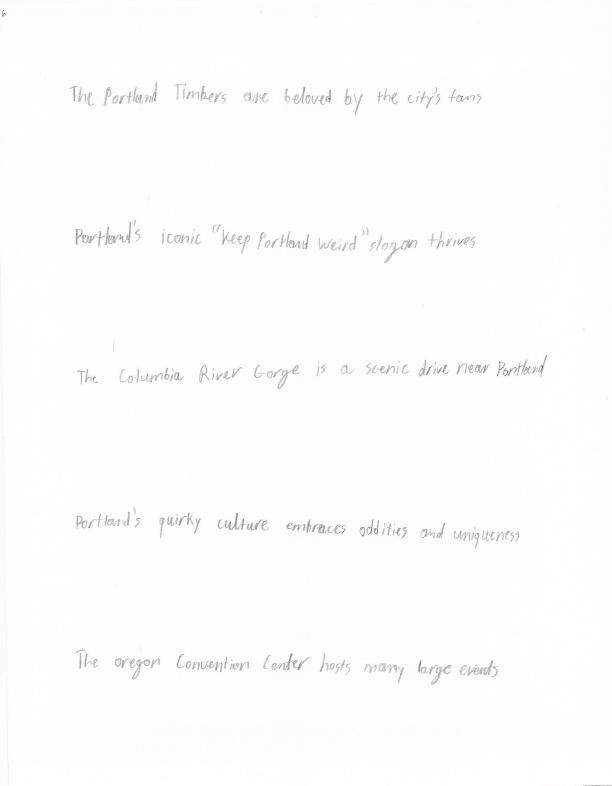 6
The Portland Timbers are beloved by the city's fans
Portland's iconic "Keep Portland Weird" slogan thrives
The Columbia River Gorge is a scenic drive near Portland
Portland's quirky culture embraces oddities and uniqueness
The oregon Convention Center hosts many large events